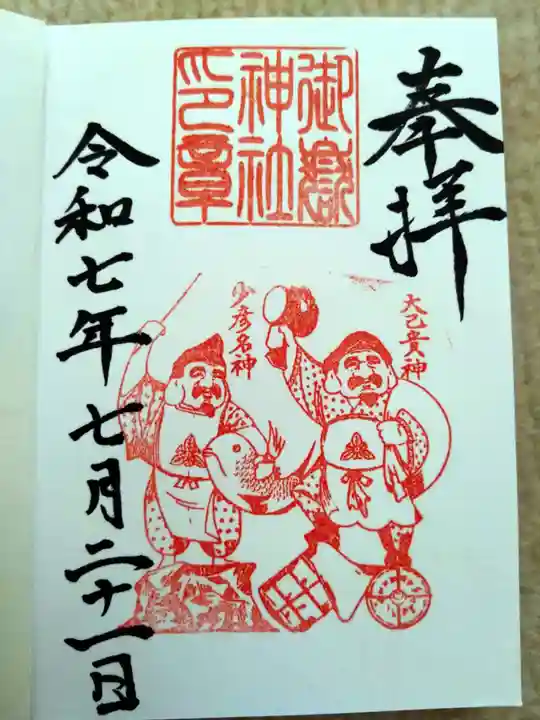 奉拝
御嶽
神社
印章
大己貴神
少彦名神
令和七年七月二十一日